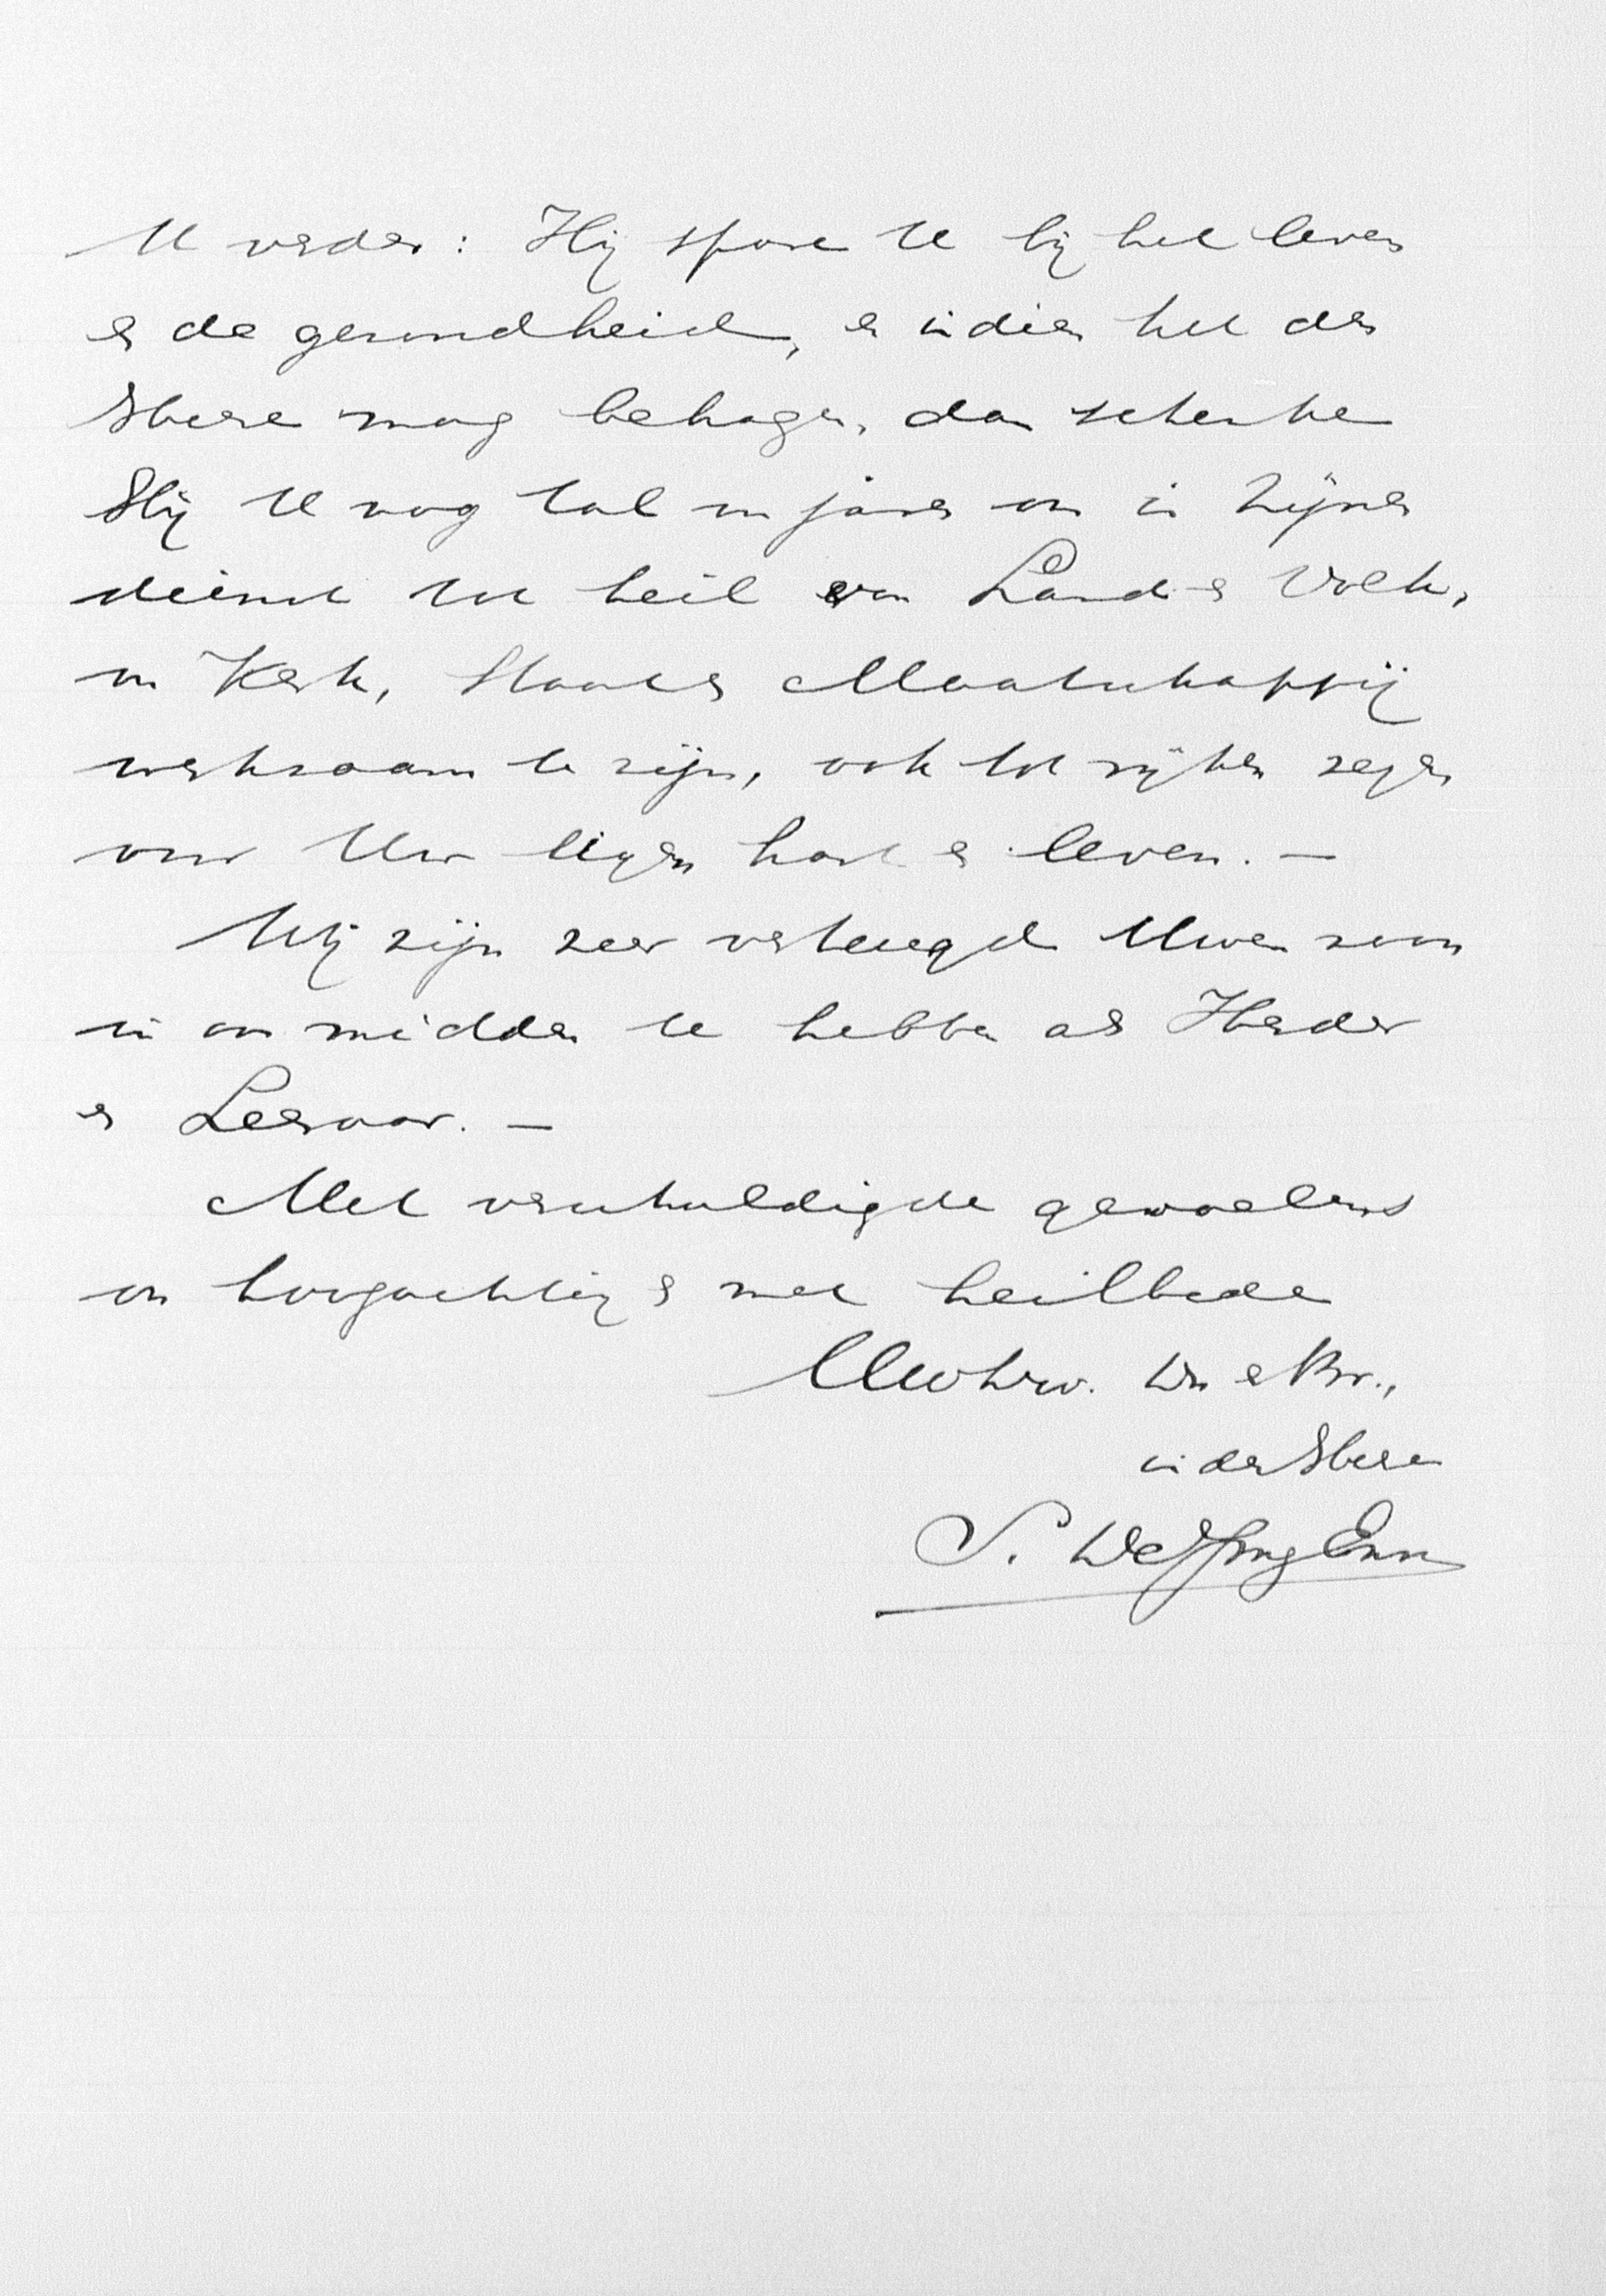 U verder: Hij spare U bij het leven
en de gezondheid, en indien het den
Heere mag behagen, dan schenke
Hij U nog tal van jaren om in Zijnen
dienst tot heil van Land en Volk,
in Kerk, Staat en Maatschappij
werkzaam te zijn, ook tot rijken zegen
voor Uw eigen hart en leven. —
Wij zijn zeer verheugd Uwen zoon
in ons midden te hebben als Herder
en Leeraar. —
Met verschuldigde gevoelens
van hoogachting en met heilbede
Uwdw. Dn en Br.,
in den Heere
S.